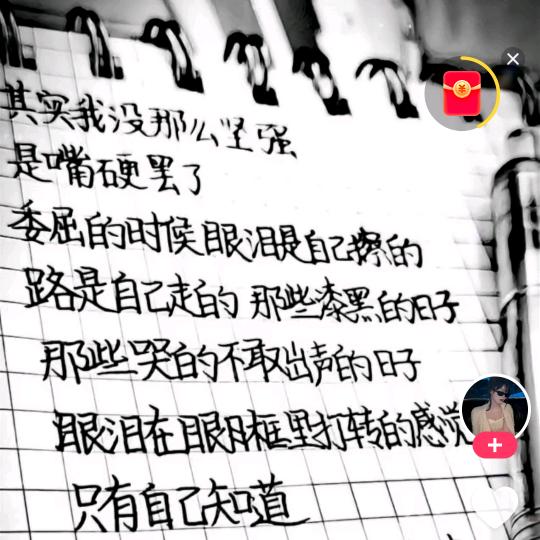 其实我没那么坚强
是嘴硬罢了
委屈的时候眼泪是自己擦的
路是自己走的 那些漆黑的日子
那些哭的不敢出声的日子
眼泪在眼眶里打转的感觉
只有自己知道